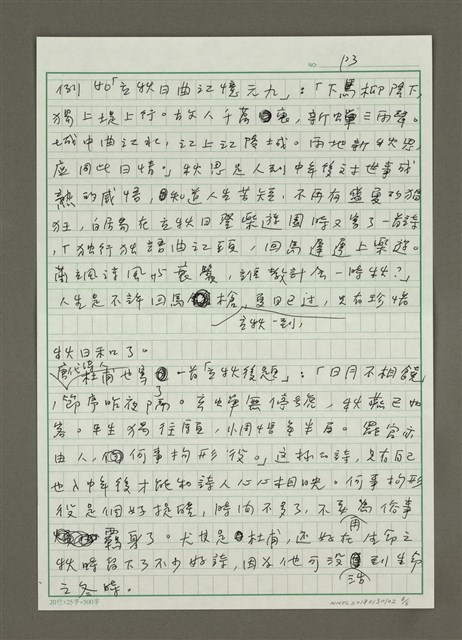 NO. P3
例如「立秋日曲江憶元九」：「下馬柳陰下,
獨上堤上行。故人千萬里，新蟬三兩聲。
城中曲江水，江上江陵城。兩地新秋思，
应同此日情。」秋思是人到中年後文对世事成
熟的感悟，知道人生苦短，不再有盛夏的猖
狂，白居易在立秋日登樂遊園時又寫了一首詩
，「独行独語曲江頭，回馬遲遲上樂遊。
蕭颯涼風与衰鬢，誰教計会一時秋？」
人生是不許回馬槍，夏日已过，只有珍惜
立秋一到，
秋日和了。
唐代詩人杜甫也寫了一首「立秋後題」：「日月不相饒
，節序昨夜隔。玄蟬無停號，秋燕已如
客。平生獨往願，惆悵年半百。罷官亦
由人，何事拘形役。」这样的詩，只有自己
也入中年後才能和詩人心心相映。何事拘形
役是個好提醒，時间不多了，不要再為俗事
羈身了。尤其是杜甫，还好在生命之
秋時留下了不少好詩，因為他可沒活到生命
之冬時。
20行×25字=500字